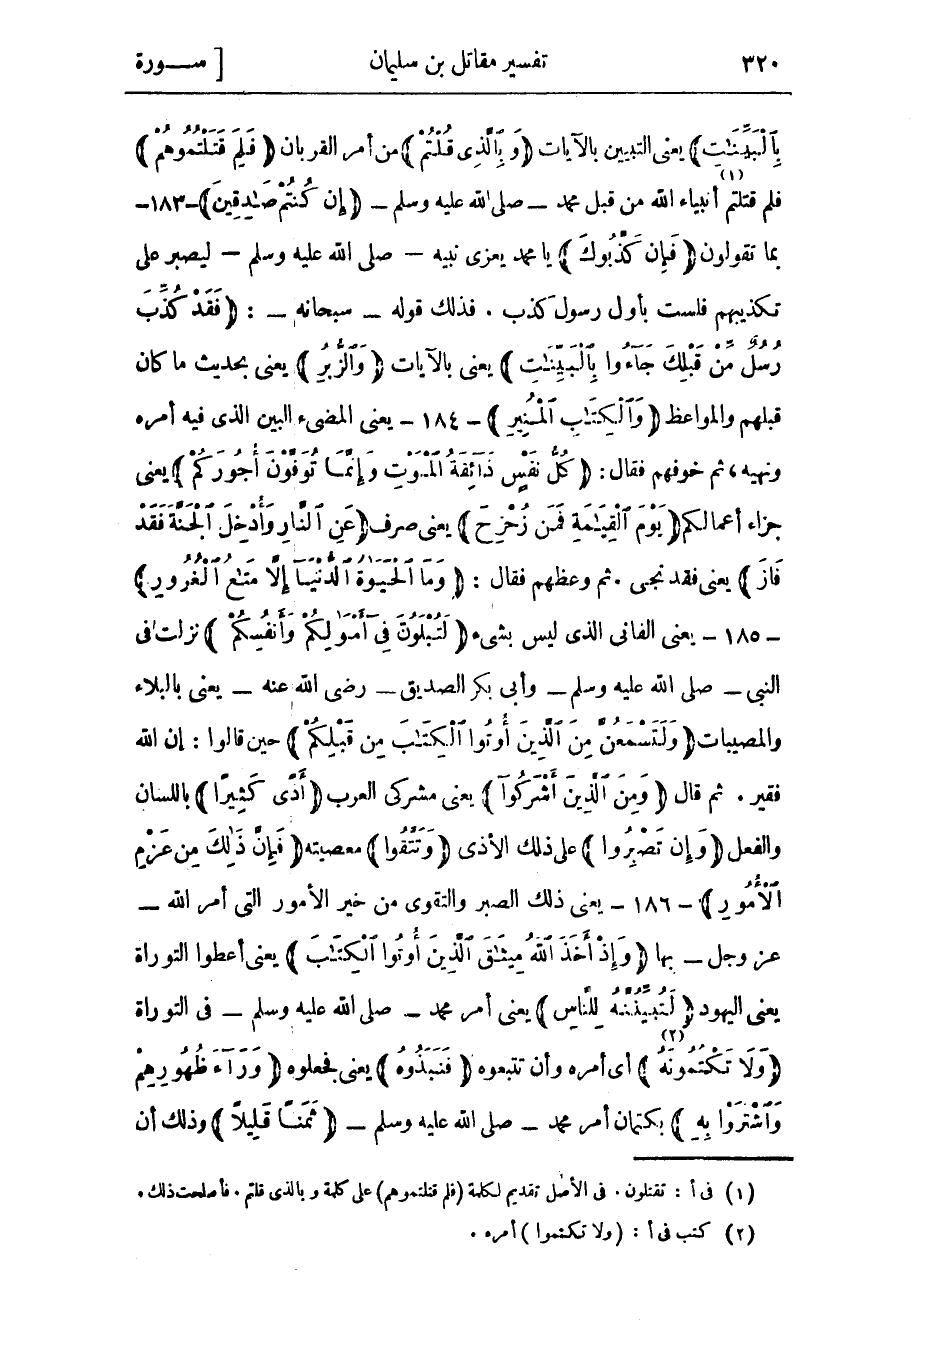 ٣٢٠ تفسير مقاتل بن سليمان [ ســورة
بِٱلْبَيِّنَـٰتِ ) يعنى التبيين بالآيات ( وَبِٱلَّذِى قُلْتُمْ ) من أمر القربان ( فَلِمَ قَتَلْتُمُوهُمْ )
فلم قتلتم (١) أنبياء الله من قبل محمد ــ صلى الله عليه وسلم ــ ( إِن كُنتُمْ صَـٰدِقِينَ ) -١٨٣-
بما تقولون ( فَإِن كَذَّبُوكَ ) يا محمد يعزى نبيه — صلى الله عليه وسلم — ليصبر على
تكذيبهم فلست بأول رسول كذب . فذلك قوله ــ سبحانه ــ : ( فَقَدْ كُذِّبَ
رُسُلٌ مِّن قَبْلِكَ جَآءُوا بِٱلْبَيِّنَـٰتِ ) يعنى بالآيات ( وَٱلزُّبُرِ ) يعنى بحديث ما كان
قبلهم والمواعظ ( وَٱلْكِتَـٰبِ ٱلْمُنِيرِ ) - ١٨٤ - يعنى المضىء البين الذى فيه أمره
ونهيه ، ثم خوفهم فقال : ( كُلُّ نَفْسٍ ذَآئِقَةُ ٱلْمَوْتِ وَإِنَّمَا تُوَفَّوْنَ أُجُورَكُمْ ) يعنى
جزاء أعمالكم ( يَوْمَ ٱلْقِيَـٰمَةِ فَمَن زُحْزِحَ ) يعنى صرف ( عَنِ ٱلنَّارِ وَأُدْخِلَ ٱلْجَنَّةَ فَقَدْ
فَازَ ) يعنى فقد نجى . ثم وعظهم فقال : ( وَمَا ٱلْحَيَوٰةُ ٱلدُّنْيَآ إِلَّا مَتَـٰعُ ٱلْغُرُورِ )
- ١٨٥ - يعنى الفانى الذى ليس بشىء ( لَتُبْلَوُنَّ فِىٓ أَمْوَٰلِكُمْ وَأَنفُسِكُمْ ) نزلت فى
النبى ــ صلى الله عليه وسلم ــ وأبى بكر الصديق ــ رضى الله عنه ــ يعنى بالبلاء
والمصيبات ( وَلَتَسْمَعُنَّ مِنَ ٱلَّذِينَ أُوتُوا ٱلْكِتَـٰبَ مِن قَبْلِكُمْ ) حين قالوا : إن الله
فقير . ثم قال ( وَمِنَ ٱلَّذِينَ أَشْرَكُوٓا ) يعنى مشركى العرب ( أَذًى كَثِيرًا ) باللسان
والفعل ( وَإِن تَصْبِرُوا ) على ذلك الأذى ( وَتَتَّقُوا ) معصيته ( فَإِنَّ ذَٰلِكَ مِن عَزْمِ
ٱلْأُمُورِ ) - ١٨٦ - يعنى ذلك الصبر والتقوى من خير الأمور التى أمر الله ــ
عز وجل ــ بها ( وَإِذْ أَخَذَ ٱللهُ مِيثَـٰقَ ٱلَّذِينَ أُوتُوا ٱلْكِتَـٰبَ ) يعنى أعطوا التوراة
يعنى اليهود ( لَتُبَيِّنُنَّهُ لِلنَّاسِ ) يعنى أمر محمد ــ صلى الله عليه وسلم ــ فى التوراة
( وَلَا تَكْتُمُونَهُ ) (٢) أى أمره وأن تتبعوه ( فَنَبَذُوهُ ) يعنى فجعلوه ( وَرَآءَ ظُهُورِهِمْ
وَٱشْتَرَوْا بِهِ ) بكتمان أمر محمد ــ صلى الله عليه وسلم ــ ( ثَمَنًا قَلِيلًا ) وذلك أن
(١) فى أ : تقتلون . فى الأصل تقديم لكلمة (فلم قتلتموهم) على كلمة وبالذى قلتم . فأصلحت ذلك .
(٢) كتب فى أ : (ولا تكتموا) أمره .